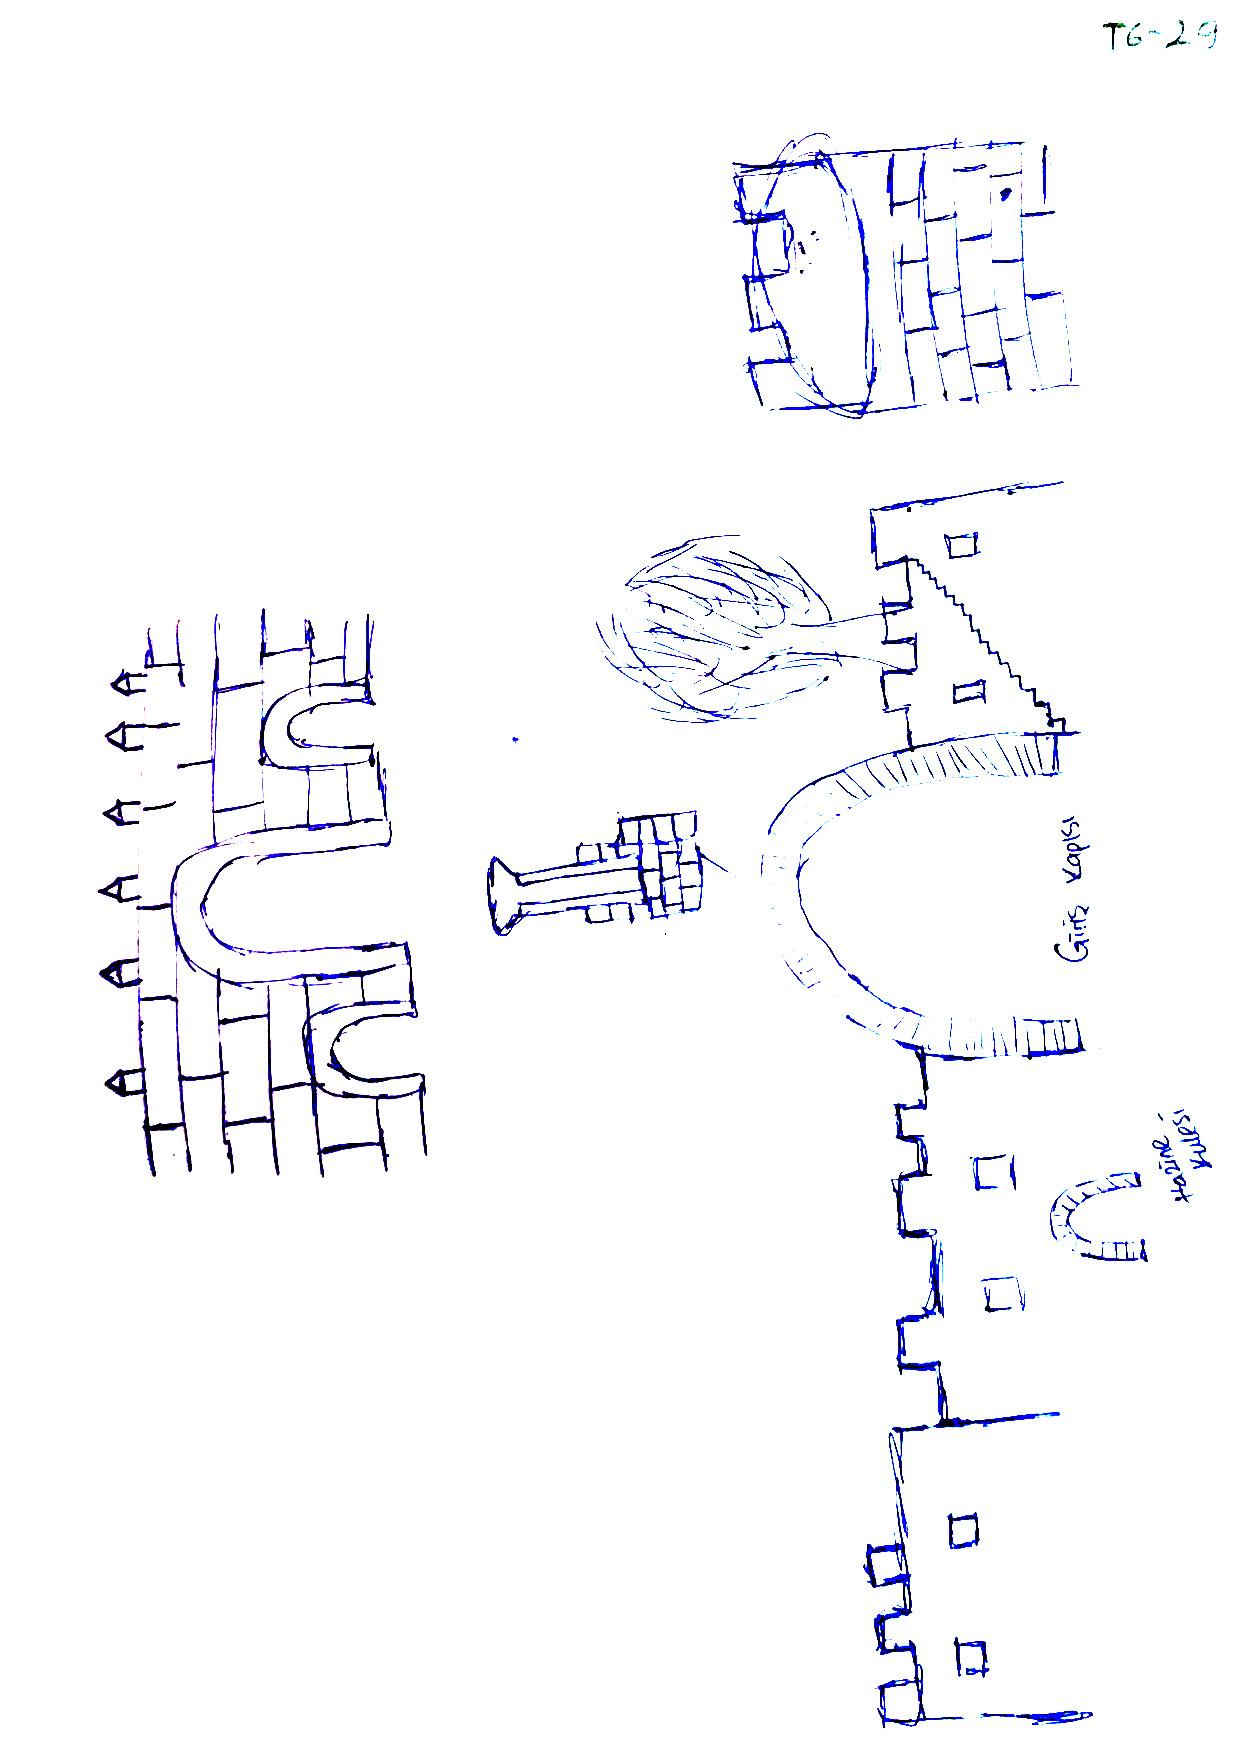 Giriş Kapısı
Hazine
Kulesi
TG-29